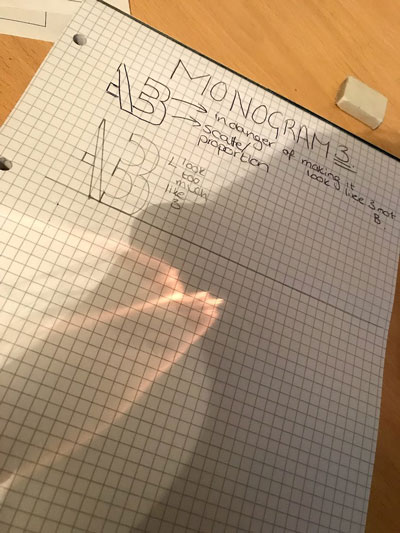 MONOGRAM 3.
AB
→ in danger of making it
look like 3 not
B
→ scale/
proportion
AB
↳ look
too
much
like
3